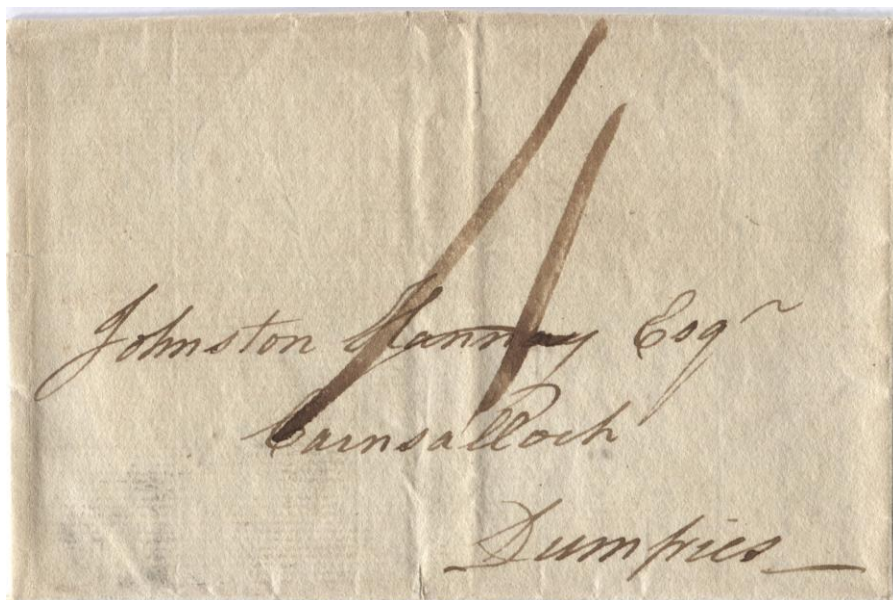 Johnston Hannay Esqr
Carnsalloch
Dumfries